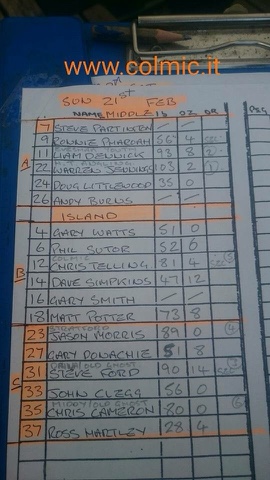 www.colmic.it
SUN 21ST FEB
NAME MIDDLE LB OZ DR PEG
A
7 STEVE PARTINTON / /
9 RONNIE PHAROAH 56 4
11 LIAM DENNICK 93 8
22 WARREN JENNINGS 103 2
24 DOUG LITTLEWOOD 35 0
26 ANDY BURNS / /
ISLAND
B
4 GARY WATTS 51 0
6 PHIL SUTOR 52 6
COLMIC
12 CHRIS TELLING 81 4
14 DAVE SIMPKINS 47 12
16 GARY SMITH / /
18 MATT POTTER 73 8
C
STRATFORD
23 JASON MORRIS 89 0 4
27 GARY DONACHIE 51 8
OLD GHOST
31 STEVE FORD 90 14
33 JOHN CLEGG 56 0
MIDDY/OLD GHOST
35 CHRIS CAMERON 80 0 6
37 ROSS HARTLEY 28 4